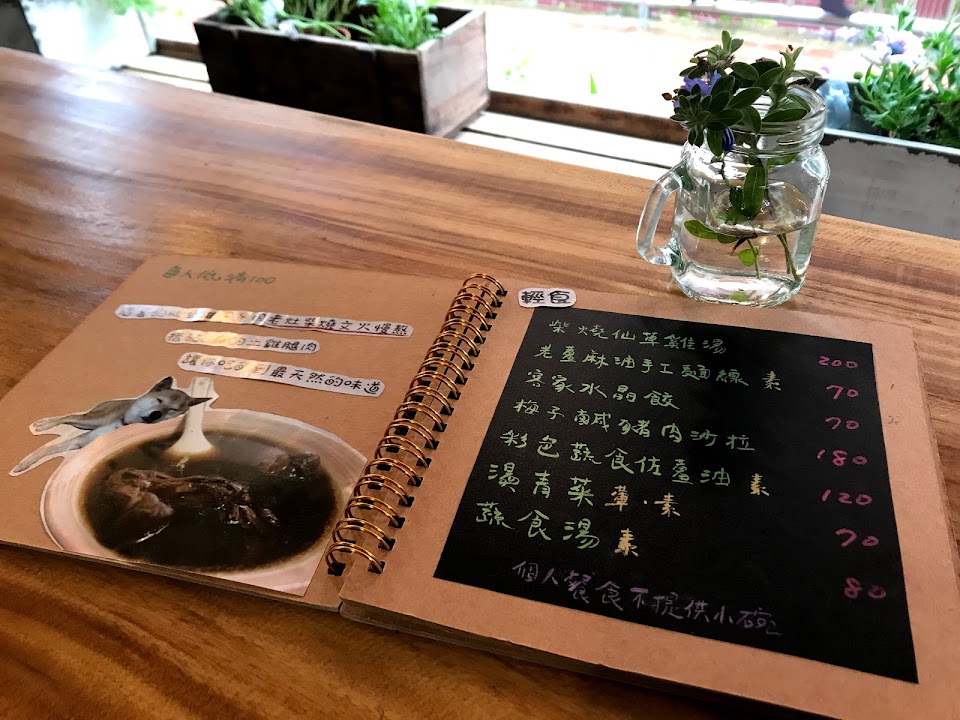 每人低消100
老灶柴燒文火慢熬
雞腿肉
讓你吃得到最天然的味道
輕食
柴燒仙草雞湯 200
老薑麻油手工麵線 素 70
客家水晶餃 70
梅子鹹豬肉沙拉 180
彩色蔬食佐薑油 素 120
燙青菜 葷・素 70
蔬食湯 素 80
個人餐食不提供小碗